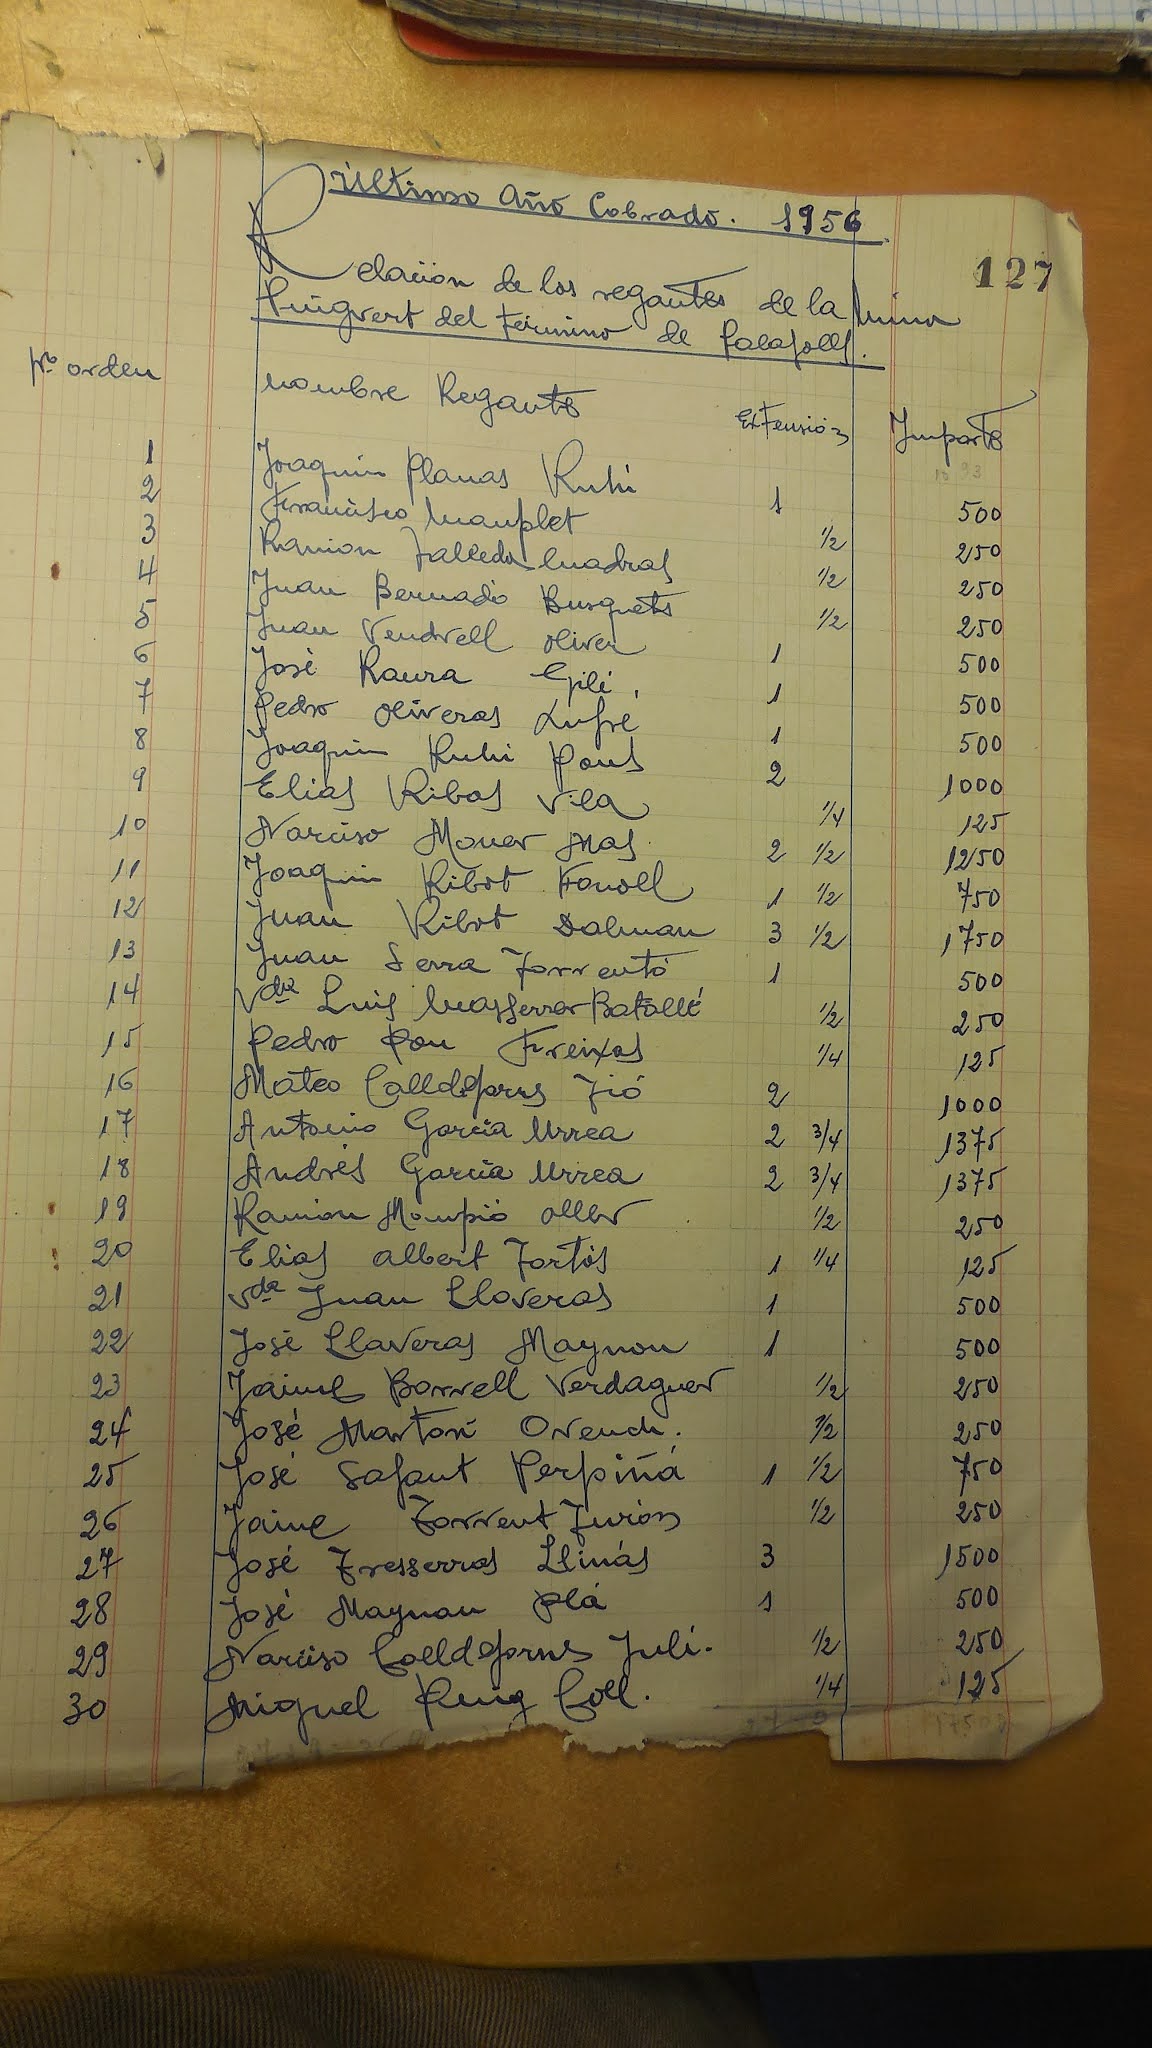 Último Año Cobrado. 1956
127
Relación de los regantes de la Mina
Puigvert del Término de Palafolls.
Nº orden nombre Regante Extensión Importe
1 Joaquin Planas Ruhi 1 500
2 Francisco 1/2 250
3 Ramon Cuadras 1/2 250
4 Juan Bernadó Busquets 1/2 250
5 Juan Vendrell Oliver 1 500
6 José Raura Gili, 1 500
7 Pedro Oliveras 1 500
8 Joaquin Ruhi Pons 2 1000
9 Elias Ribas Vila 1/4 125
10 Narciso Moner Mas. 2 1/2 1250
11 Joaquin Ribot Fonoll 1 1/2 750
12 Juan Ribot Dalmau 3 1/2 1750
13 Juan Serra Torrentó 1 500
14 Vda Luis Masferrer Batallé 1/2 250
15 Pedro Pou Freixas 1/4 125
16 Mateo Calldeforns Tió 2 1000
17 Antonio Garcia Urrea 2 3/4 1375
18 Andrés Garcia Urrea 2 3/4 1375
19 Ramon Mompió Oller 1/2 250
20 Elias Albert Tortós 1 1/4 125
21 Vda Juan Llaveras 1 500
22 José Llaveras Maynou 1 500
23 Jaime Borrell Verdaguer 1/2 250
24 José Martori 1/2 250
25 José Safaut Perpiñá 1 1/2 750
26 Jaime Torrent Turón 1/2 250
27 José Fresserras Llinás 3 1500
28 José Maynou Plá 1 500
29 Narciso Calldeforns Juli. 1/2 250
30 Miguel Puig Coll. 1/4 125